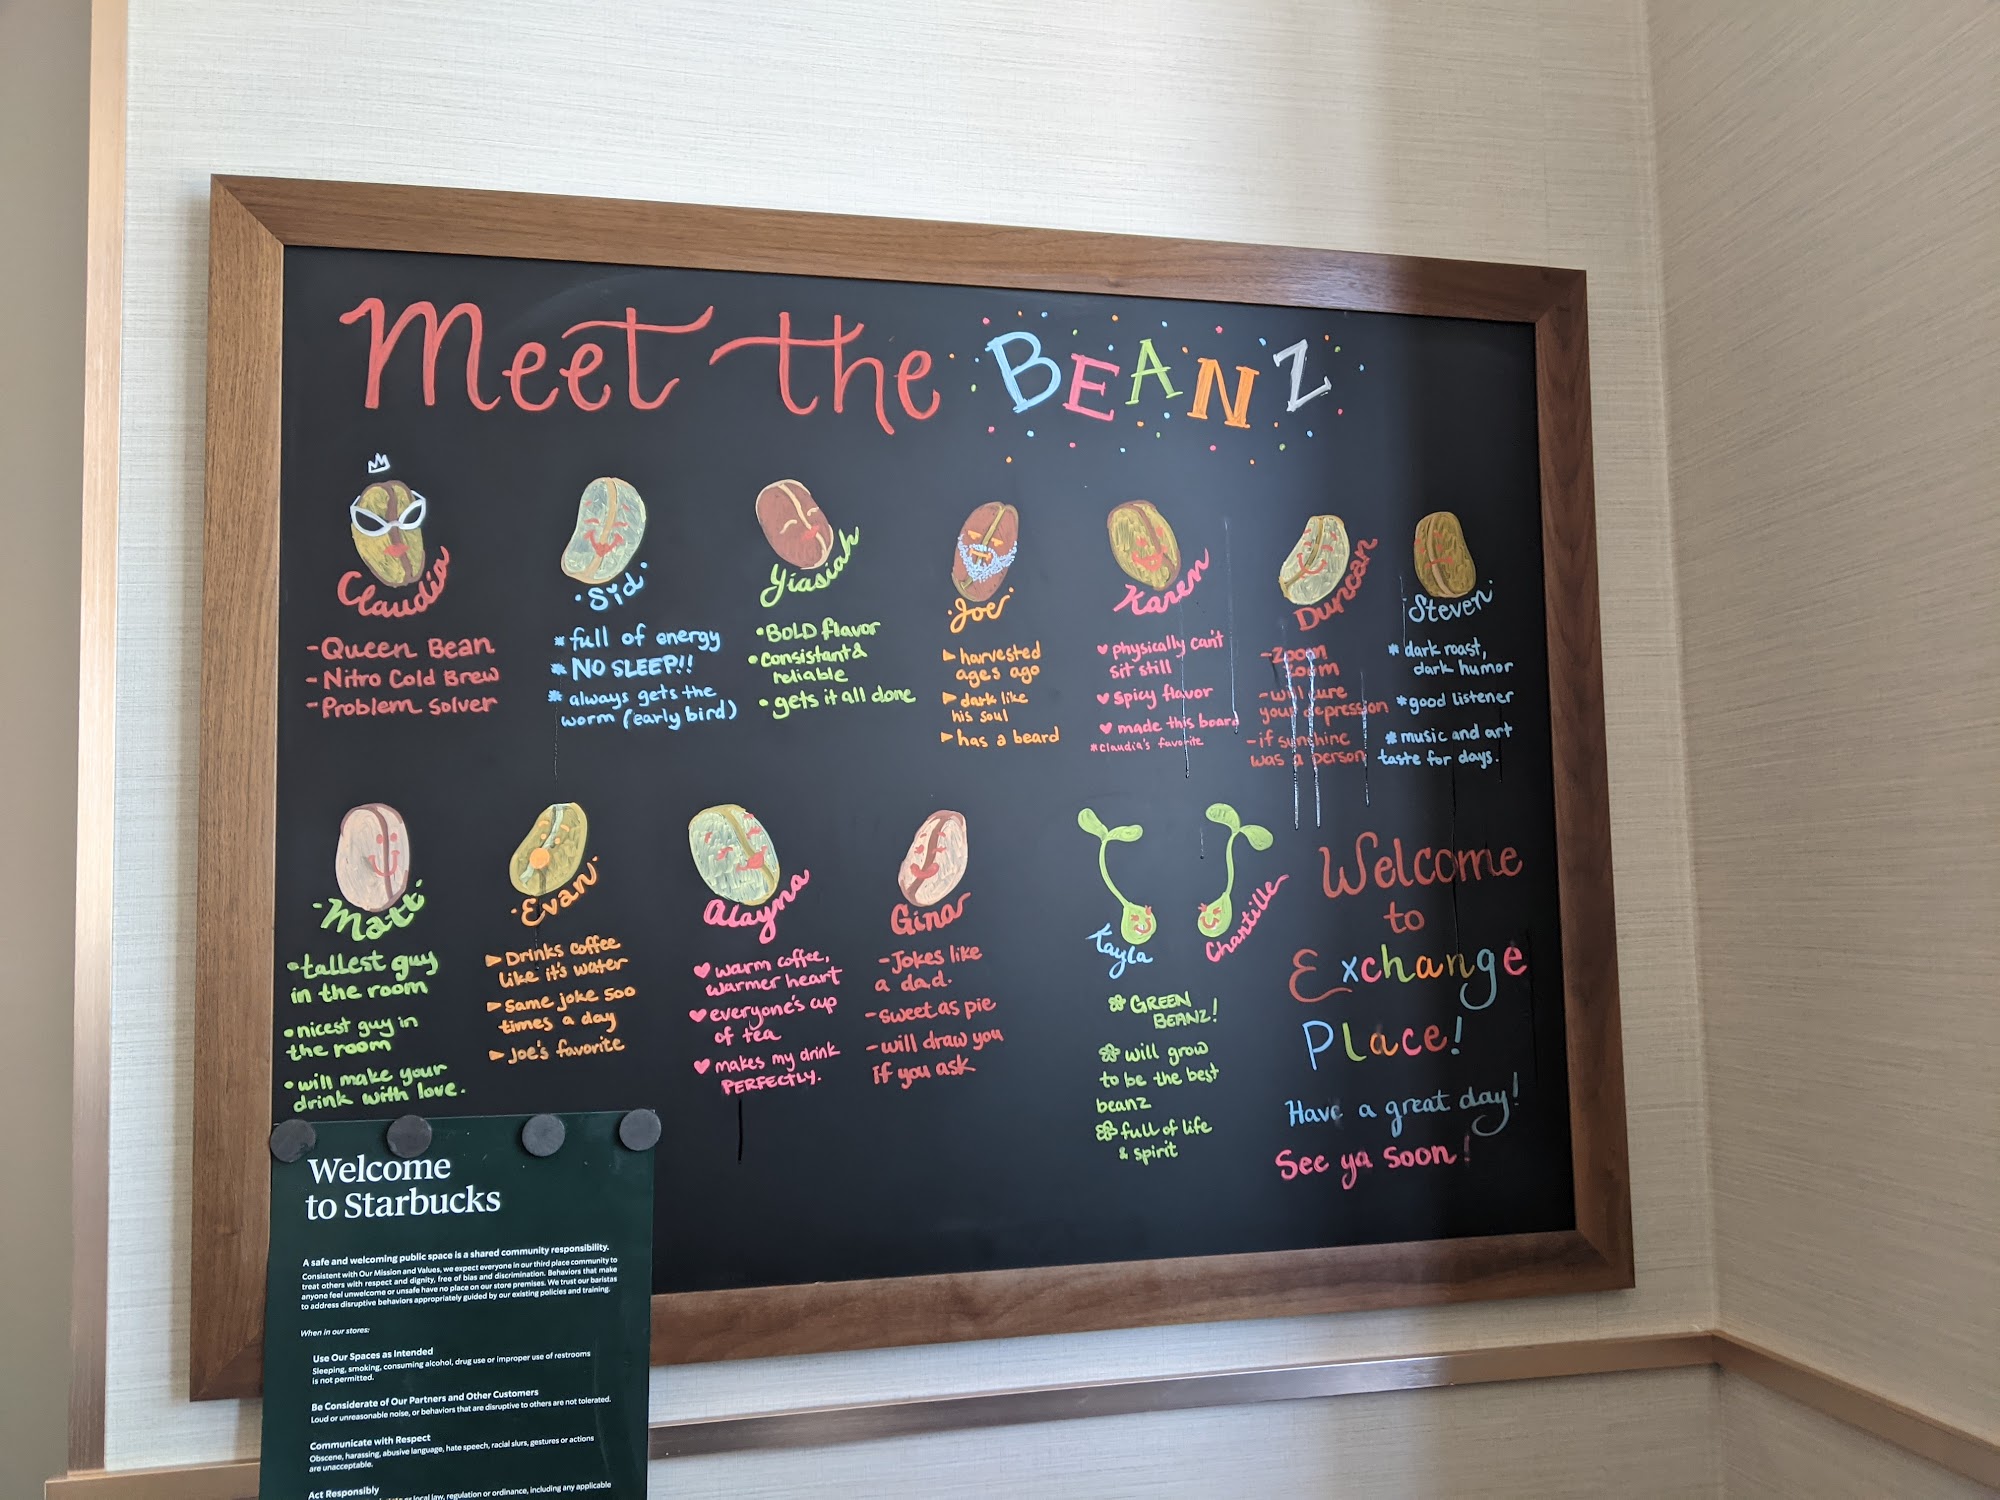 Meet the BEANZ
Claudia
- Queen Bean
- Nitro Cold Brew
- Problem Solver
Sid
* full of energy
* NO SLEEP!!
* always gets the
worm (early bird)
Yiasiah
• BOLD flavor
• Consistant &
reliable
• gets it all done
Joe
harvested
ages ago
dark like
his soul
has a beard
Karem
♥ physically can't
sit still
♥ spicy flavor
♥ made this board
* Claudia's favorite
Duncan
- Zoom
Zoom
- will cure
your depression
- if sunshine
was a person
Steven
* dark roast,
dark humor
* good listener
* music and art
taste for days.
Matt
• tallest guy
in the room
• nicest guy in
the room
• will make your
drink with love.
Evan
Drinks coffee
like it's water
Same joke 500
times a day
Joe's favorite
Alayna
♥ warm coffee,
warmer heart
♥ everyone's cup
of tea
♥ makes my drink
PERFECTLY.
Gina
- Jokes like
a dad.
- sweet as pie
- will draw you
if you ask
Kayla
Chantille
GREEN
BEANZ!
will grow
to be the best
beanz
full of life
& spirit
Welcome
to
Exchange
Place!
Have a great day!
See ya soon!
Welcome
to Starbucks
A safe and welcoming public space is a shared community responsibility.
Consistent with Our Mission and Values, we expect everyone in our third place community to
treat others with respect and dignity, free of bias and discrimination. Behaviors that make
anyone feel unwelcome or unsafe have no place on our store premises. We trust our baristas
to address disruptive behaviors appropriately guided by our existing policies and training.
When in our stores:
Use Our Spaces as Intended
Sleeping, smoking, consuming alcohol, drug use or improper use of restrooms
is not permitted.
Be Considerate of Our Partners and Other Customers
Loud or unreasonable noise, or behaviors that are disruptive to others are not tolerated.
Communicate with Respect
Obscene, harassing, abusive language, hate speech, racial slurs, gestures or actions
are unacceptable.
Act Responsibly
or local law, regulation or ordinance, including any applicable